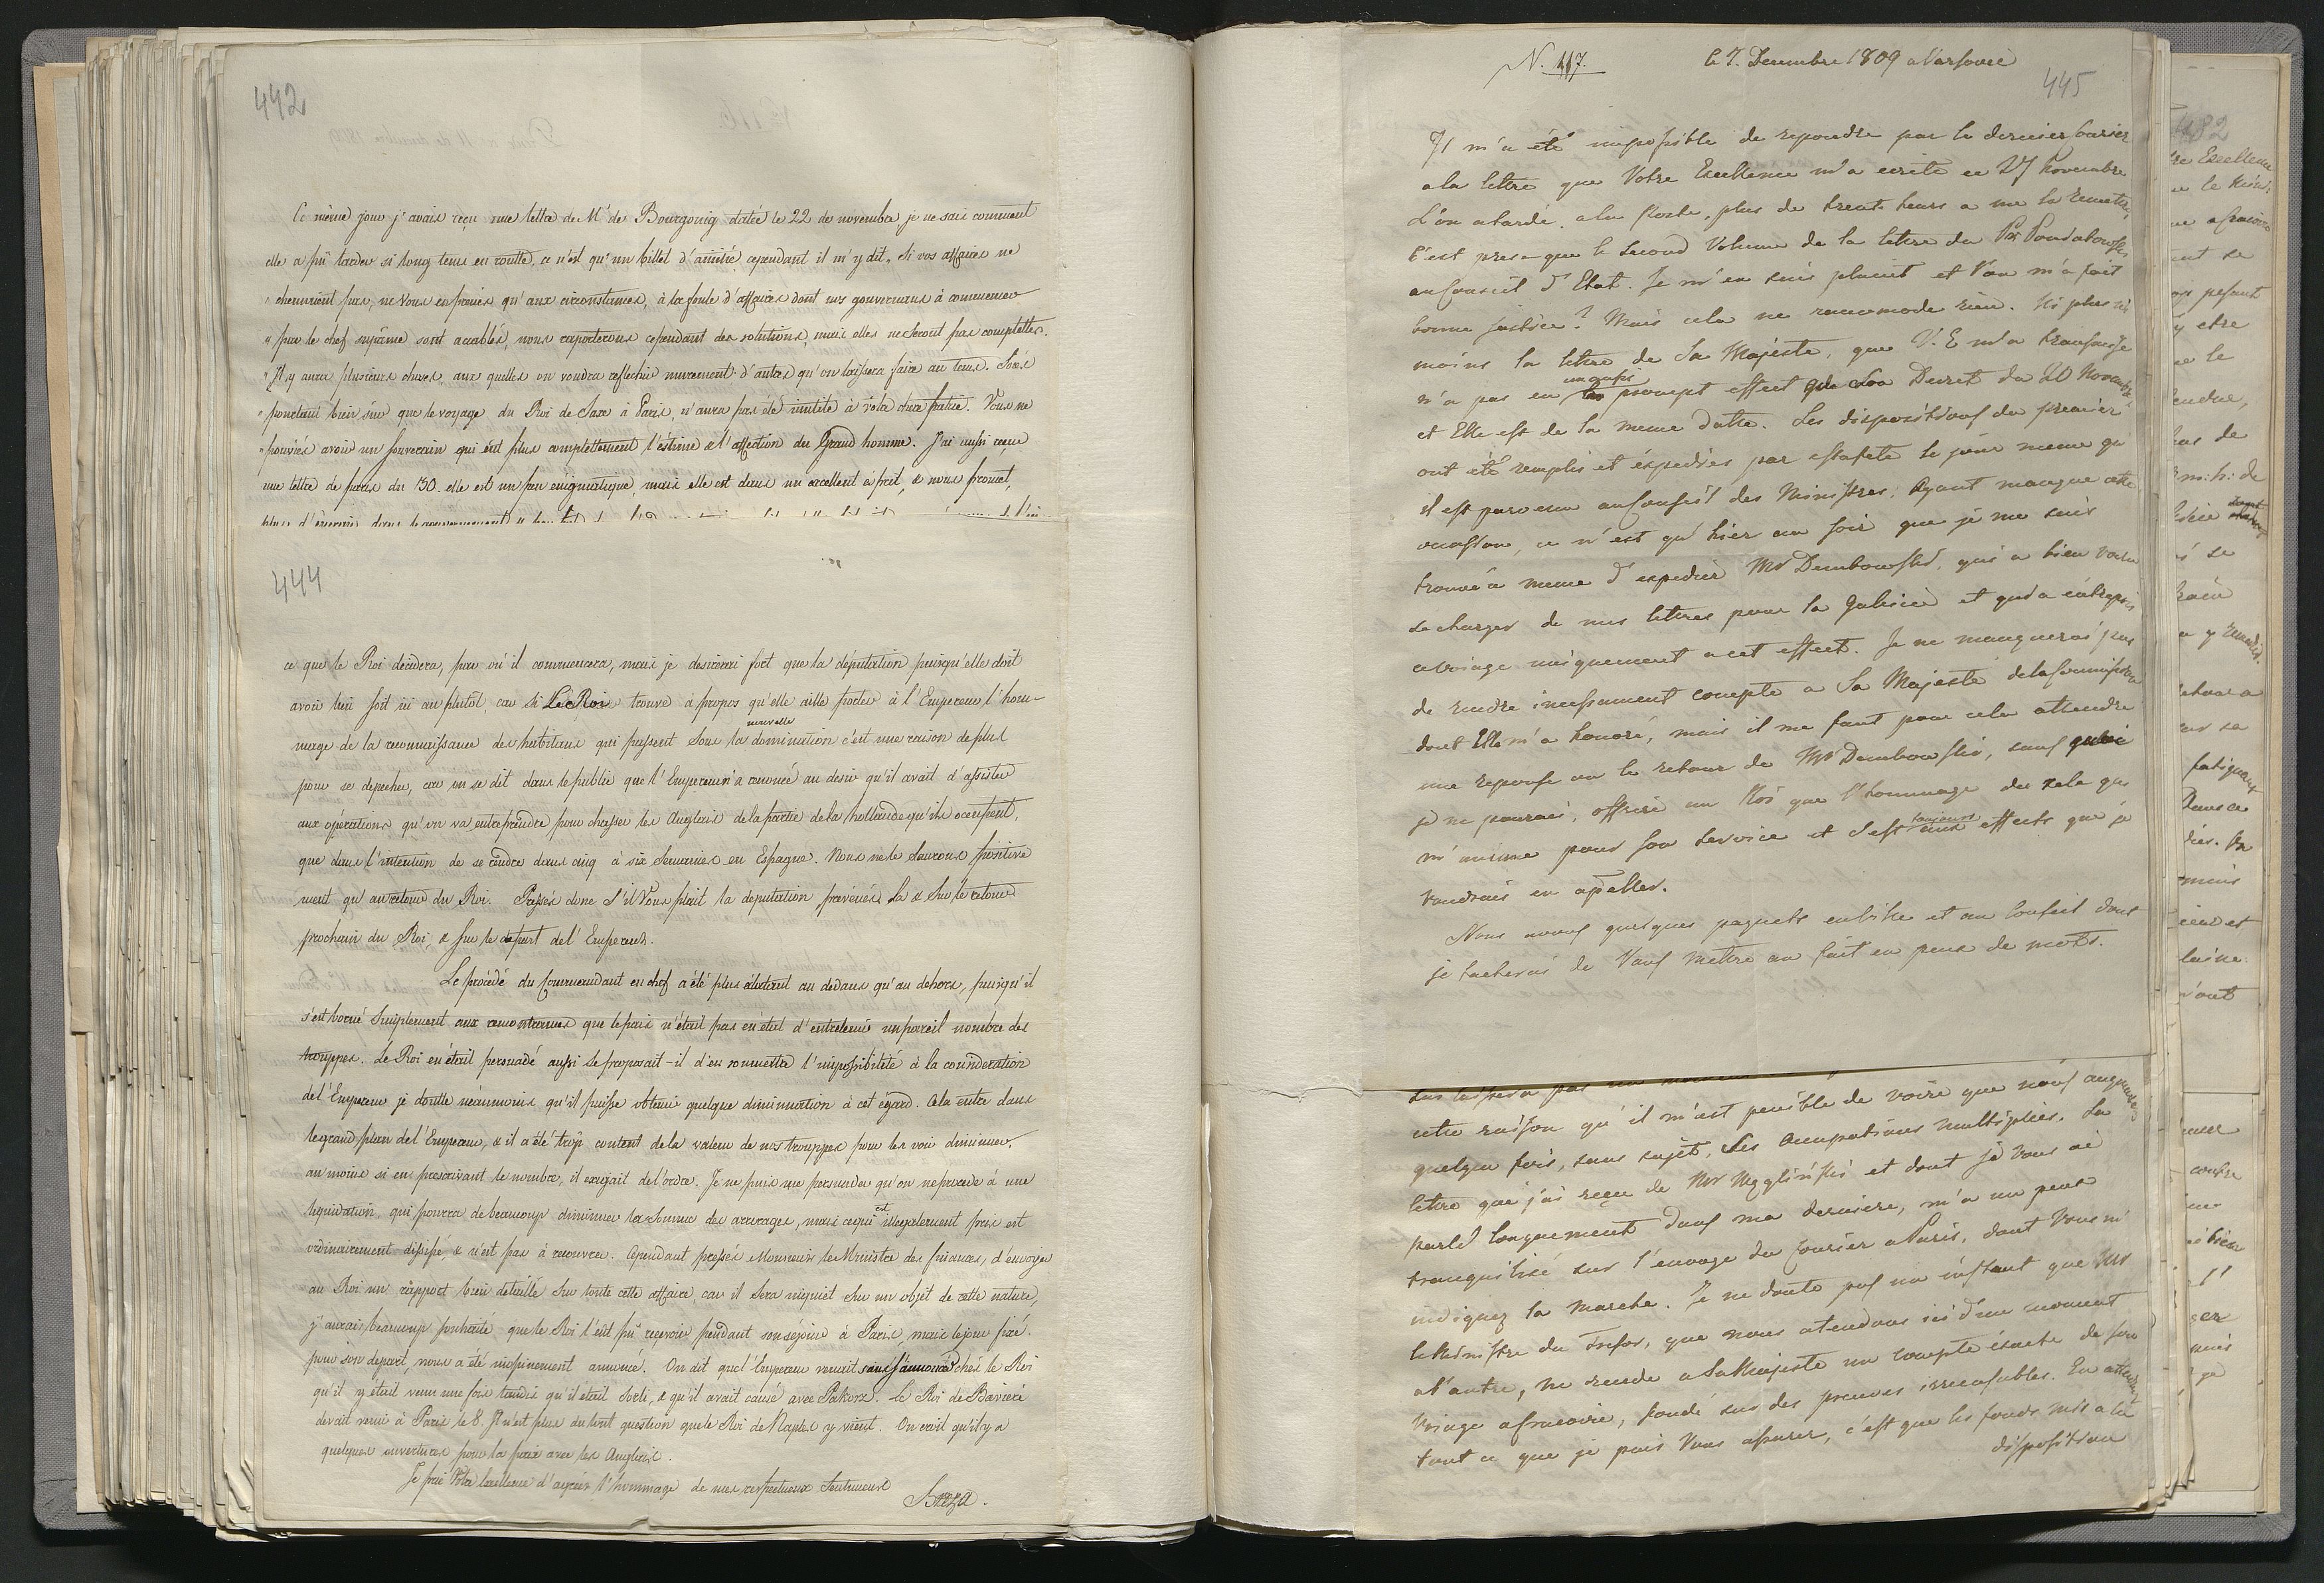 442
Ce même jour j'avais reçu une lettre de Mr de Bourgoing datée le 22 de novembre je ne sais comment
elle a pû tarder si long tems en route, ce n'est qu'un billet d'amitié cependant il m'y dit, si vos affaires ne
" cheminent pas, ne Vous en prenés qu'aux circonstances, à la foule d'affaires dont nos gouvernans à commencer
" par le chef suprême sont accablés, nous rapporterons cependant des solutions, mais elles ne seront pas complettes.
" Il y aura plusieurs choses, aux quelles on voudra reflechir murement d'autres qu'on laissera faire au tems. Soiés
" pourtant bien sûr que le voyage du Roi de Saxe à Paris, n'aura pas été inutile à votre chere patrie. Vous ne
" pouviés avoir un souverain qui eût plus complettement l'estime & l'affection du Grand homme. J'ai aussi reçue
une lettre de paris du 30. elle est un peu enigmatique, mais elle est dans un excellent esprit, & nous promet,
444
ce que le Roi decidera, par où il commencera, mais je desirerai fort que la députation puisqu'elle doit
avoir lieu soit ici au plutôt, car si Le Roi trouve à propos qu'elle aille porter à l'Empereur l'hom-
mage de la reconnaissance des habitans qui passent sous la nouvelle domination c'est une raison de plus
pour se depecher, car on se dit dans le public que l'Empereur a renoncé au desir qu'il avait d'assister
aux opérations qu'on va entreprendre pour chasser les Anglais de la partie de la hollande qu'ils occupent,
que dans l'intention de se rendre dans cinq à six semaines en Espagne. Nous ne le saurons positive
ment qu'au retour du Roi. Pressés donc s'il Vous plait la deputation, prévenés la & sur le retour
prochain du Roi, & sur le départ de l'Empereur.
Le procédé du Commandant en chef a été plus éclatant au dedans qu'au dehors, puisqu'il
s'est borné simplement aux remontrances que le pais n'était pas en état d'entretenir un pareil nombre des
trouppes. Le Roi en était persuadé aussi se proposait-il d'en soumettre l'impossibilité à la consideration
de l'Empereur je doutte néanmoins qu'il puisse obtenir quelque diminution à cet égard. Cela entre dans
le grand plan de l'Empereur, & il a été trop content de la valeur de nos trouppes pour les voir diminuer.
au moins si en prescrivant le nombre, il exigait de l'ordre. Je ne puis me persuader qu'on ne procede à une
liquidation, qui pourra de beaucoup diminuer la somme des arrerages, mais ce qui est illegalement pris est
ordinairement dissipé, & n'est pas à recouvrer. Cependant pressés Monsieur le Ministre des finances, d'envoyer
au Roi un rapport bien detaillé sur toute cette affaire, car il sera inquiet sur un objet de cette nature,
j'aurais beaucoup souhaité que le Roi l'eût pû reçevoir pendant son séjour à Paris, mais le jour fixé
pour son depart, nous a été inopinement annoncé. On dit que l'Empereur venait sans s'annoncer chés le Roi
qu'il y était venu une fois tandis qu'il etait sorti, & qu'il avait causé avec Pakosz. Le Roi de Baviere
devait venir à Paris le 8. Il n'est plus du tout question que le Roi de Naples y vient. On croit qu'il y a
quelques ouvertures pour la paix avec les Anglais.
Je prie Votre Excellence d'agréer l'hommage de mes respectueux sentimens
Breza.
N. 117. le 7. Decembre 1809 a Varsovie
445
Il m'a été impossible de repondre par le dernier Courier
a la lettre que Votre Excellence m'a ecrite ce 27 Novembre
L'on a tardé, a la Poste, plus de trente heurs a me la remettre,
C'est presque le second Volume de la lettre du Pce Poniatowski
au Conseil d'Etat. Je m'en suis plaint et l'on m'a fait
bonne justice? Mais cela ne racommode rien. Ni plus ni
moins la lettre de Sa Majesté, que V. E m'a transmise
n'a pas eu un aussi prompt effect que Son Decret du 20 Novembre
et Elle est de la meme datte. Les dispositions du premier
ont été remplis et éxpediés par estafete le jour meme qu'
il est parvenu au Conseil des Ministres. Ayant manqué cette
ocasion, ce n'est qu'hier au soir que je me suis
trouvé a meme d'expedier Mr Dembowski, qui a bien voulu
se charger de mes lettres pour la Galicie et qui a entrepris
ce voiage uniquement a cet effect. Je ne manquerai pas
de rendre incessament compte a Sa Majesté de la Commission
dont Elle m'a honoré, mais il me faut pour cela attendre
une reponse ou le retour de Mr Dembowski, sans quoi
je ne pourais, offrir au Roi que l'hommage du zele qui
m'anime pour son service et c'est toujours aux effects que je
voudrais en apeller.
Nous avons quelques paquets en bître et au Conseil dont
je tacherai de Vous mettre au fait en peu de mots.
cette raison qu'il m'est penible de voire que nous augmentons
quelque fois, sans sujet, Ses Ocupations multipliés. La
lettre que j'ai reçue de Mr Węgliński et dont je Vous ai
parlé longuement dans ma derniere, m'a un peu
tranquilisé sur l'envoye du Courier a Paris, dont Vous m'
indiquez la marche. Je ne doute pas un instant que Mr
le Ministre du Tresor, que nous atendons ici d'un moment
a l'autre, ne rende a Sa Majesté un compte éxacte de son
voiage a Cracovie, fondé sur des preuves irrecusables. En attendant
tout ce que je puis Vous assurer, c'est que les fonds mis a la
disposition
482